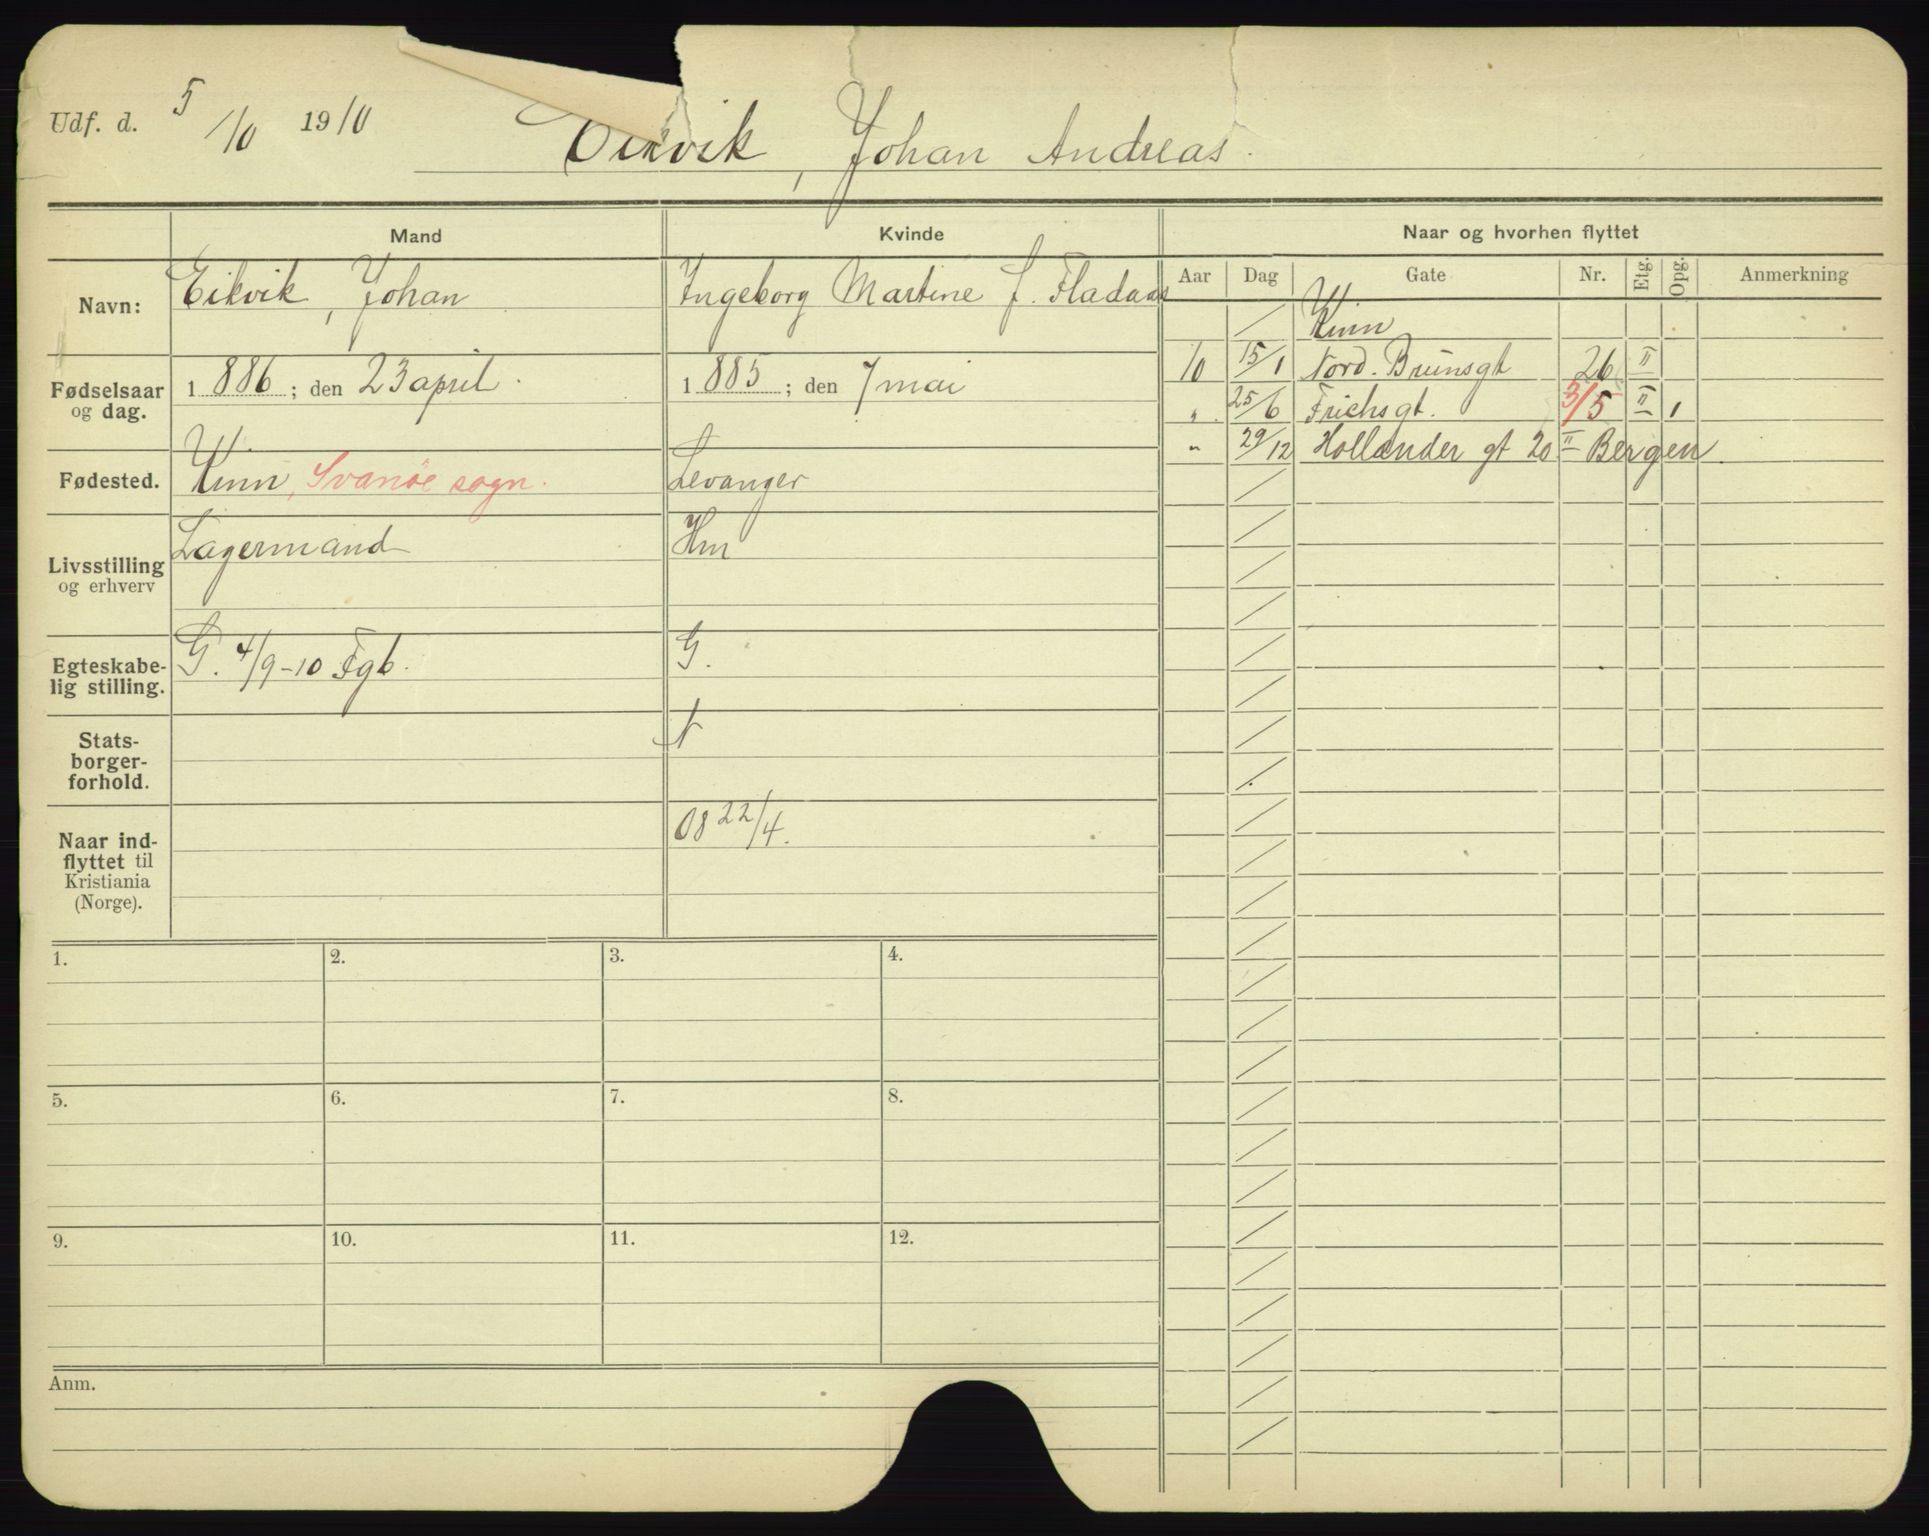 Udf. d. 5/10 1910
Eikvik, Johan Andreas.
Mand
Kvinde
Naar og hvorhen flyttet
Navn:
Eikvik, Johan
Ingeborg Martine f. Fladaas
Fødselsaar
og dag.
1886; den 23 april.
1885; den 7 mai
Fødested.
Kinn, Svanöe sogn.
Levanger
Livsstilling
og erhverv
Lagermand
Hm
Egteskabe-
lig stilling.
G. 4/9-10 Fgb.
G.
Stats-
borger-
forhold.
N
Naar ind-
flyttet til
Kristiania
(Norge).
08 22/4.
Aar Dag Gate Nr. Etg. Opg. Anmerkning
/ Kinn
10 15/1 Nord. Brunsgt 26 II
" 25/6 Frichsgt. 3/5 II 1
" 29/12 Hollander gt 20 II Bergen.
1. 2. 3. 4.
5. 6. 7. 8.
9. 10. 11. 12.
Anm.